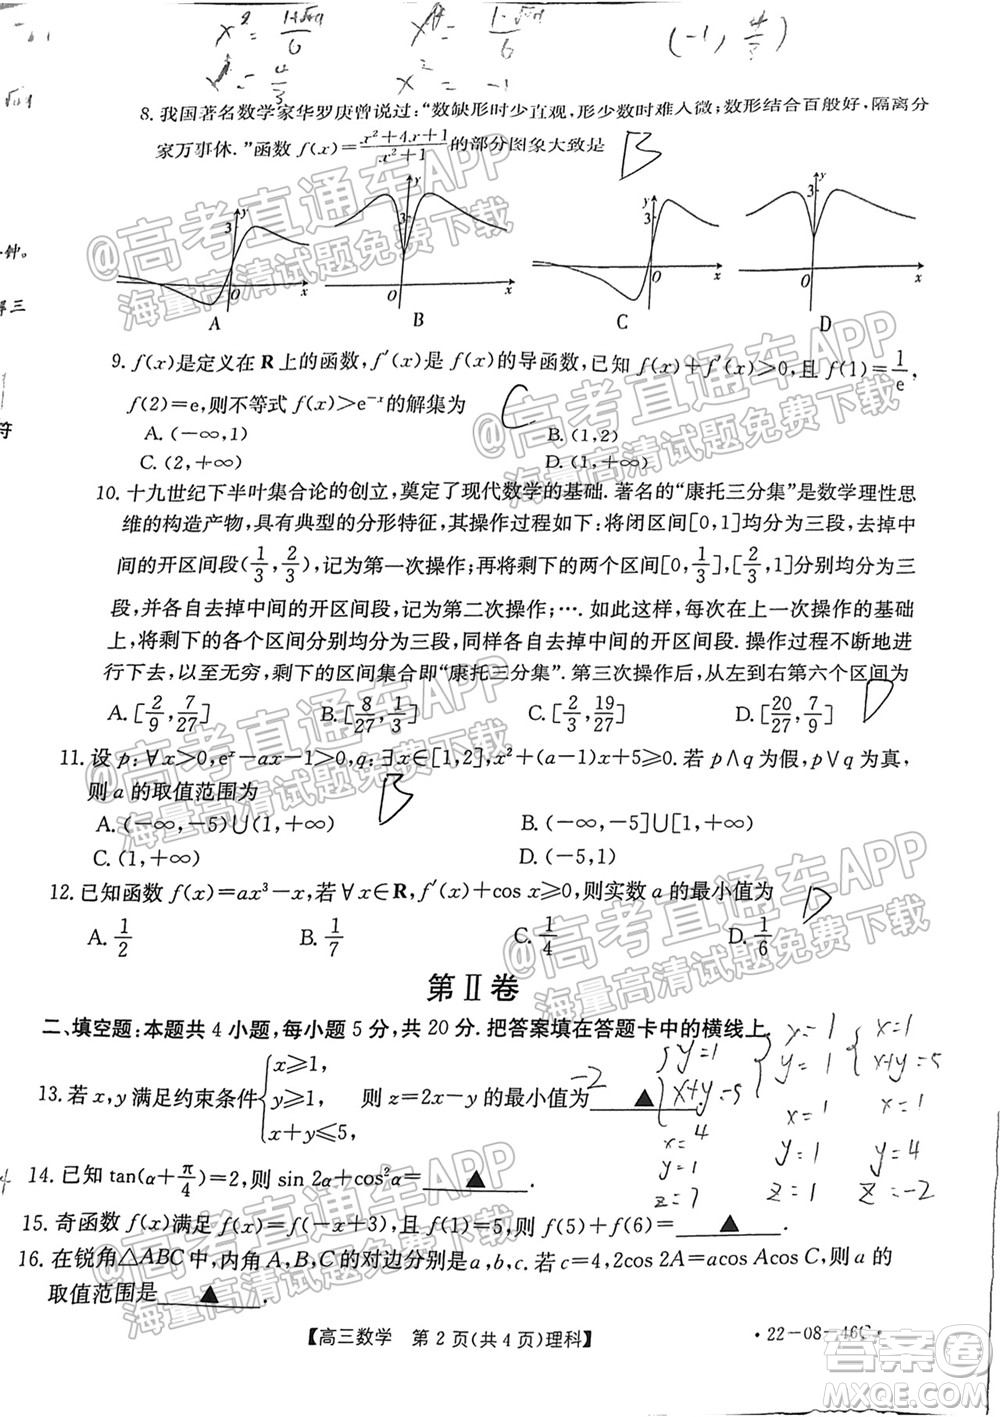 x² = (1+√...)/6   x² = (1-√...)/6   (-1, 4/3)
x² = 4/3   x² = -1
8. 我国著名数学家华罗庚曾说过：“数缺形时少直观，形少数时难入微；数形结合百般好，隔离分
家万事休.”函数 f(x)=(x²+4x+1)/(x²+1) 的部分图象大致是 B
y y y y
3 3 3 3
O x O x O x O x
A B C D
钟。
9. f(x)是定义在 R 上的函数，f′(x)是 f(x)的导函数，已知 f(x)+f′(x)≥0，且 f(1)=1/e，
f(2)=e，则不等式 f(x)>e⁻ˣ的解集为 C
A. (-∞,1) B. (1,2)
C. (2,+∞) D. (1,+∞)
10. 十九世纪下半叶集合论的创立，奠定了现代数学的基础. 著名的“康托三分集”是数学理性思
维的构造产物，具有典型的分形特征，其操作过程如下：将闭区间[0,1]均分为三段，去掉中
间的开区间段(1/3,2/3)，记为第一次操作；再将剩下的两个区间[0,1/3],[2/3,1]分别均分为三
段，并各自去掉中间的开区间段，记为第二次操作；…. 如此这样，每次在上一次操作的基础
上，将剩下的各个区间分别均分为三段，同样各自去掉中间的开区间段. 操作过程不断地进
行下去，以至无穷，剩下的区间集合即“康托三分集”. 第三次操作后，从左到右第六个区间为 D
A. [2/9,7/27] B. [8/27,1/3] C. [2/3,19/27] D. [20/27,7/9]
11. 设 p：∀x>0，eˣ-ax-1>0，q：∃x∈[1,2]，x²+(a-1)x+5≥0. 若 p∧q 为假，p∨q 为真，
则 a 的取值范围为 B
A. (-∞,-5)∪(1,+∞) B. (-∞,-5]∪[1,+∞)
C. (1,+∞) D. (-5,1)
12. 已知函数 f(x)=ax³-x，若∀x∈R，f′(x)+cos x≥0，则实数 a 的最小值为 D
A. 1/2 B. 1/7 C. 1/4 D. 1/6
第Ⅱ卷
二、填空题：本题共 4 小题，每小题 5 分，共 20 分. 把答案填在答题卡中的横线上.
13. 若 x,y 满足约束条件{x≥1, y≥1, x+y≤5, 则 z=2x-y 的最小值为 ▲ . -2
{y=1 x+y=5 {x=1 y=1 {x=1 x+y=5
x=4 x=1 x=1
y=1 y=1 y=4
z=7 z=1 z=-2
14. 已知 tan(α+π/4)=2，则 sin 2α+cos²α= ▲ .
15. 奇函数 f(x)满足 f(x)=f(-x+3)，且 f(1)=5，则 f(5)+f(6)= ▲ .
16. 在锐角△ABC 中，内角 A,B,C 的对边分别是 a,b,c. 若 c=4，2cos 2A=acos Acos C，则 a 的
取值范围是 ▲ .
【高三数学 第 2 页(共 4 页)理科】
·22-08-46C·
@高考直通车APP
海量高清试题免费下载
@高考直通车APP
海量高清试题免费下载
@高考直通车APP
海量高清试题免费下载
@高考直通车APP
海量高清试题免费下载
@高考直通车APP
海量高清试题免费下载
答案圈
MXQE.COM